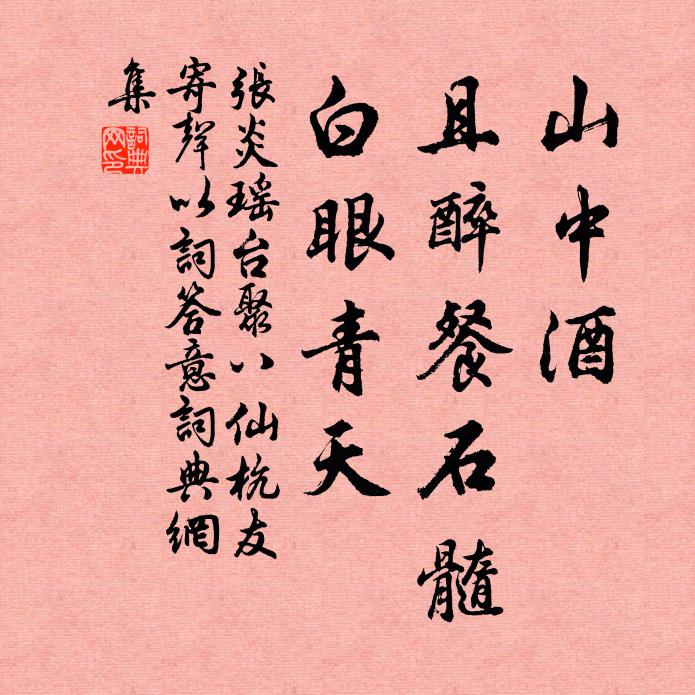 山中酒
且醉餐石髓
白眼青天
張炎瑶台聚八仙杭友
寄聲以詞答意詞典網
集
詞典
网印